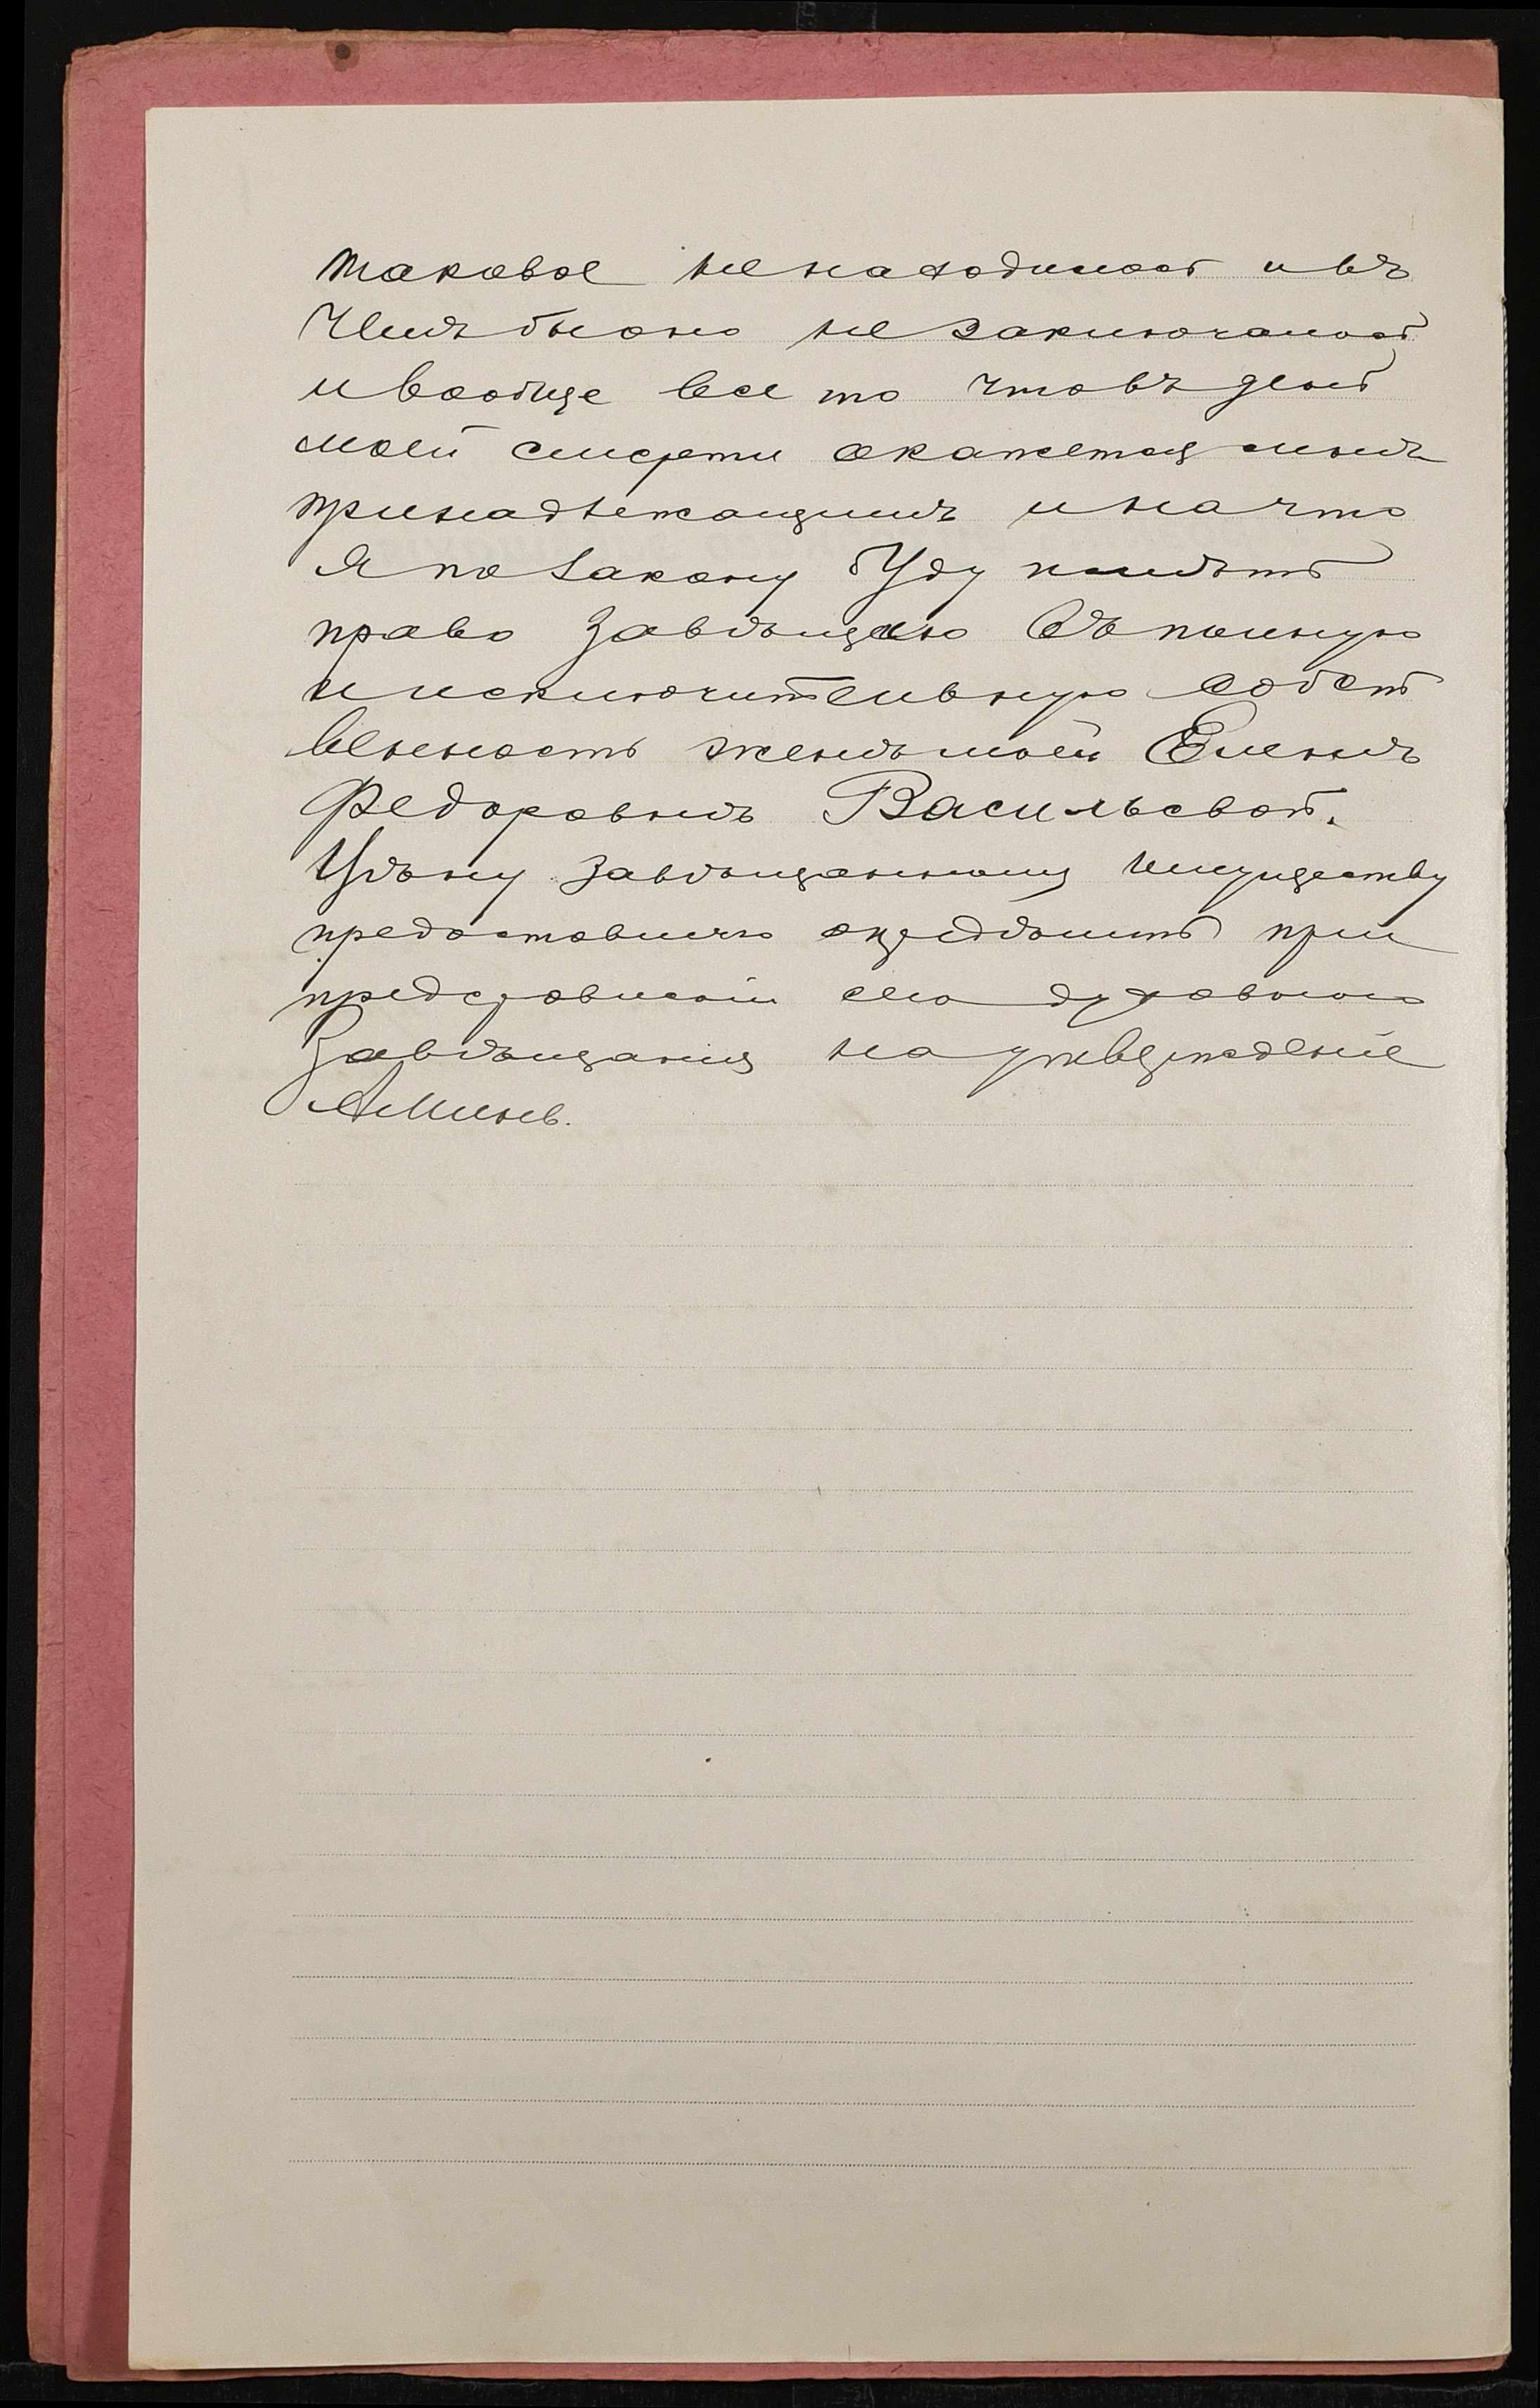 таковое не находилось и въ
Чемъ бы оно не заключалось
и вообще все то что въ день
моей смерти окажется мнѣ
принадлежащимъ и на что
Я по закону буду имѣть
право завѣщаю въ полную
и исключительную собст
венность женѣ моей Еленѣ
Федоровнѣ Васильевой.
Цѣну завѣщанному имуществу
предоставляю опредѣлить при
представленіи сего духовного
Завѣщанія на утвержденіе
Аминь.